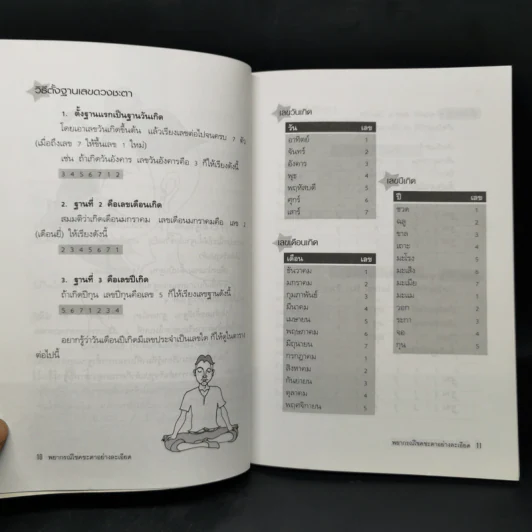 วิธีตั้งฐานเลขดวงชะตา
1. ตั้งฐานแรกเป็นฐานวันเกิด
โดยเอาเลขวันเกิดขึ้นต้น แล้วเรียงเลขต่อไปจนครบ 7 ตัว
(เมื่อถึงเลข 7 ให้ขึ้นเลข 1 ใหม่)
เช่น ถ้าเกิดวันอังคาร เลขวันอังคารคือ 3 ก็ให้เรียงดังนี้
3 4 5 6 7 1 2
2. ฐานที่ 2 คือเลขเดือนเกิด
สมมติว่าเกิดเดือนมกราคม เลขเดือนมกราคมคือ เลข 2
(เดือนยี่) ให้เรียงดังนี้
2 3 4 5 6 7 1
3. ฐานที่ 3 คือเลขปีเกิด
ถ้าเกิดปีกุน เลขปีกุนคือเลข 5 ก็ให้เรียงเลขฐานดังนี้
5 6 7 1 2 3 4
อยากรู้ว่าวันเดือนปีเกิดมีเลขประจำเป็นเลขใด ก็ให้ดูในตาราง
ต่อไปนี้
10 พยากรณ์โชคชะตาอย่างละเอียด
เลขวันเกิด
วัน เลข
อาทิตย์ 1
จันทร์ 2
อังคาร 3
พุธ 4
พฤหัสบดี 5
ศุกร์ 6
เสาร์ 7
เลขเดือนเกิด
เดือน เลข
ธันวาคม 1
มกราคม 2
กุมภาพันธ์ 3
มีนาคม 4
เมษายน 5
พฤษภาคม 6
มิถุนายน 7
กรกฎาคม 1
สิงหาคม 2
กันยายน 3
ตุลาคม 4
พฤศจิกายน 5
เลขปีเกิด
ปี เลข
ชวด 1
ฉลู 2
ขาล 3
เถาะ 4
มะโรง 5
มะเส็ง 6
มะเมีย 7
มะแม 1
วอก 2
ระกา 3
จอ 4
กุน 5
พยากรณ์โชคชะตาอย่างละเอียด 11